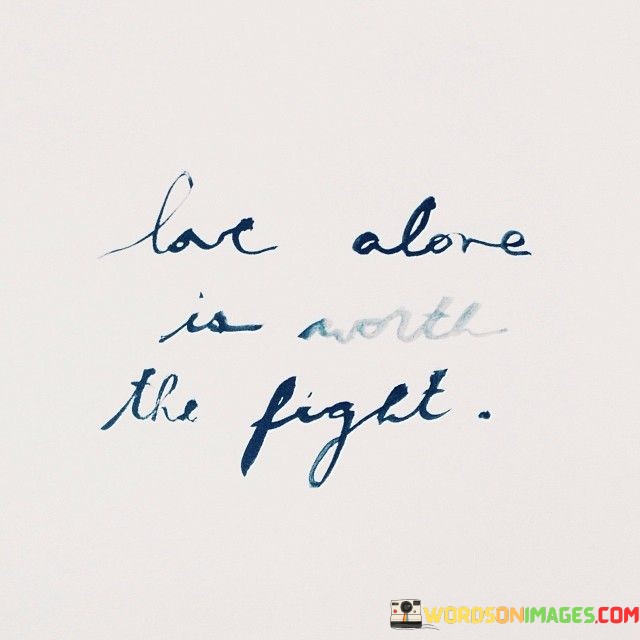 love alone
is worth
the fight.
WORDSONIMAGES.COM